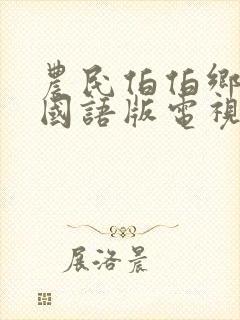 農民伯伯鄉
國語版電視
展洛晨